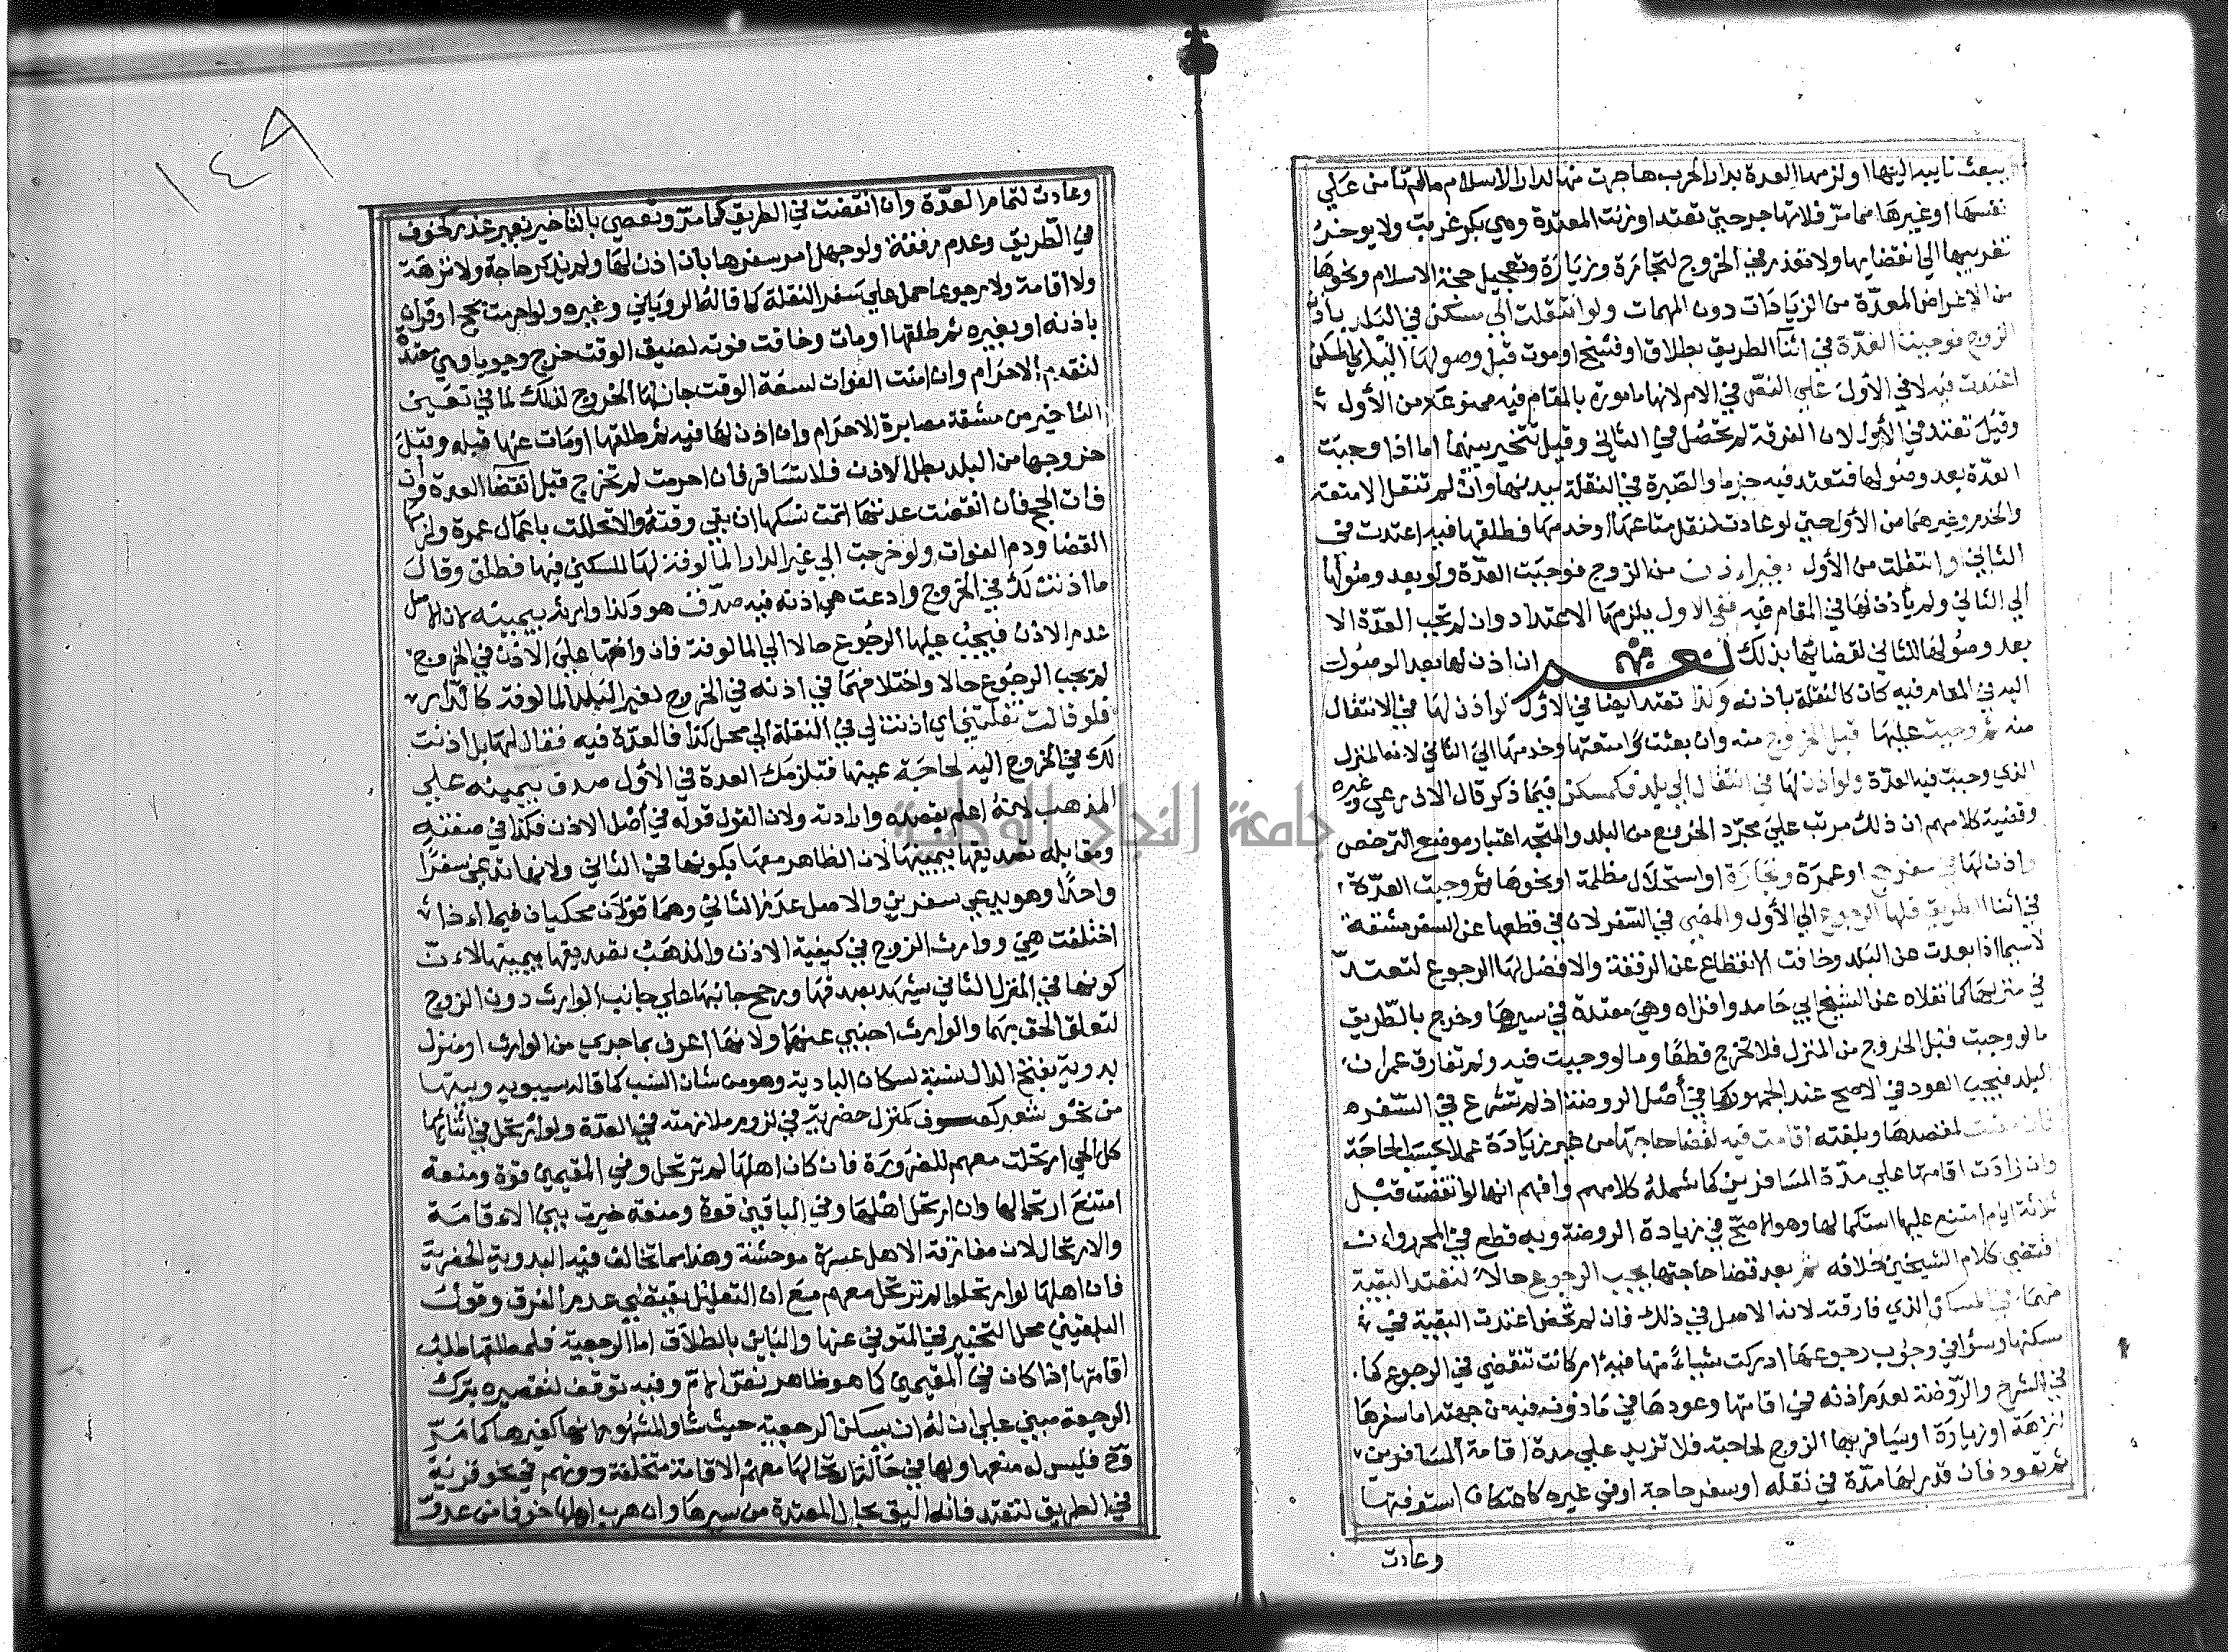 يبعث نايبه اليها او لزمها العدة بدار الحرب هاجرت منها لدار الاسلام ما لم تامن علي
نفسها او غيرها مما مر فلا تهاجر حتي تعتد او زنت المعتدة وهي بكر غربت ولا يوخر
تغريبها الي انقضايها ولا تعذر في الخروج لتجارة وزيارة وتعجيل حجة الاسلام ونحوها
من الاغراض المعدة من الزيادات دون المهمات ولو انتقلت الي مسكن في البلد باذن
الزوج فوجبت العدة في اثنا الطريق بطلاق او فسخ او موت قبل وصولها اليه
اعتدت فيه لا في الأول علي النص في الام لانها مامورة بالمقام فيه ممنوعة من الأول
وقيل تعتد في الأول لان الفرقة لم تحصل في الثاني وقيل تتخير بينهما اما اذا وجبت
العدة بعد وصولها فتعتد فيه جزما والعبرة في النقلة ببدنها وان لم تنقل الامتعة
والخدم وغيرهما من الأول حتي لو عادت لنقل متاعها او خدمها فطلقها فيه اعتدت في
الثاني او انتقلت من الأول بغير اذن من الزوج فوجبت العدة ولو بعد وصولها
الي الثاني ولم ياذن لها في المقام فيه ففي الاول يلزمها الاعتداد وان لم تجب العدة الا
بعد وصولها للثاني لعصيانها بذلك نعم ان اذن لها بعد الوصول
اليه في المقام فيه كان كالنقلة باذنه وكذا تعتد ايضا في الأول لو أذن لها في الانتقال
منه ثم وجبت عليها قبل الخروج منه وان بعثت امتعتها وخدمها الي الثاني لانه المنزل
الذي وجبت فيه العدة ولو اذن لها في انتقال الي بلد فكمسكن فيما ذكر قال الاذرعي وغيره
وقضية كلامهم ان ذلك مرتب علي مجرد الخروج من البلد والمتجه اعتبار موضع الترخص
او اذن لها في سفر حج او عمرة وتجارة او استحلال مظلمة او نحوها ثم وجبت العدة
في أثنا الطريق فلها الرجوع الي الأول والمضي في السفر لان في قطعها عن السفر مشقة
لاسيما اذا بعدت عن البلد وخافت الانقطاع عن الرفقة والافضل لها الرجوع لتعتد
في منزلها كما نقلاه عن الشيخ ابي حامد واقراه وهي معتدة في سيرها وخرج بالطريق
ما لو وجبت قبل الخروج من المنزل فلا تخرج قطعا وما لو وجبت فيه ولم تفارق عمران
البلد فيجب العود في الاصح عند الجمهور كما في أصل الروضة اذ لم تشرع في السفر
فان مضت لمقصدها وبلغته أقامت فيه لقضا حاجتها من غير زيادة عملا بحسب الحاجة
وان زادت اقامتها علي مدة المسافرين كما شمله كلامهم وافهم انها لو انقضت قبل
ثلاثة ايام امتنع عليها استكمالها وهو الاصح في زيادة الروضة وبه قطع في المحرر وان
اقتضي كلام الشيخين خلافه ثم بعد قضا حاجتها يجب الرجوع حالا لتعتد البقية
منها في المسكن الذي فارقته لانه الاصل في ذلك فان لم تمض اعتدت البقية في
مسكنها وسوا في وجوب رجوعها ادركت شيياً منها فيه ام كانت تنقضي في الرجوع كما
في الشرح والروضة لعدم أذنه في اقامتها وعودها في ماذون فيه من جهته اما سفرها
لنزهة او زيارة او يسافر بها الزوج لحاجته فلا تزيد علي مدة اقامة المسافرين
ثم تعود فان قدر لها مدة في نقله او سفر حاجة او في غيره كاعتكاف استوفتها
وعادت
١٤٩
وعادت لتمام العدة وان انقضت في الطريق كما مر وتعصي بالتاخير بغير عذر كخوف
في الطريق وعدم رفقة ولو جهل امر سفرها بان اذن لها ولم يذكر حاجة ولا نزهة
ولا اقامة ولا رجوعا حمل علي سفر النقلة كما قاله الروياني وغيره ولو احرمت بحج او قران
باذنه او بغيره ثم طلقها او مات وخافت فوته لضيق الوقت خرج وجوبا وهي معتدة
لتقدم الاحرام وان امنت الفوات لسعة الوقت جاز لها الخروج لذلك لما في تعيين
التاخير من مشقة مصابرة الاحرام وان اذن لها فيه ثم طلقها او مات عنها قبله وقبل
خروجها من البلد بطل الاذن فلا تسافر فأن احرمت لم تخرج قبل انقضا العدة وان
فات الحج فأن انقضت عدتها اتمت نسكها ان بقي وقته والا تحللت باعمال عمرة ولزمها
القضا ودم الفوات ولو خرجت الي غير الدار المالوفة لها للسكني فيها فطلق وقال
ما اذنت لك في الخروج وادعت هي اذنه فيه صدق هو وكذا وارثه بيمينه لان الاصل
عدم الاذن فيجب عليها الرجوع حالا الي المالوفة فان وافقها علي الاذن في الخروج
لم يجب الرجوع حالا واختلافهما في اذنه في الخروج لغير البلد المالوفة كالدار
فلو قالت نقلتني اي اذنت لي في النقلة الي محل كذا فالعدة فيه فقال لها بل اذنت
لك في الخروج اليه لحاجة عينها فتلزمك العدة في الأول صدق بيمينه علي
المذهب لانه اعلم بقصده وارادته ولان القول قوله في أصل الاذن فكذا في صفته
ومقابله تصديقها بيمينها لان الظاهر معها بكونها في الثاني ولانها تدعي سفرًا
واحدًا وهو يدعي سفرين والاصل عدم الثاني وهما قولان محكيان فيما اذا
اختلفت هي ووارث الزوج في كيفية الاذن والمذهب تصديقها بيمينها لان
كونها في المنزل الثاني يشهد بصدقها ورجح جانبها علي جانب الوارث دون الزوج
لتعلق الحق بهما والوارث اجنبي عنهما ولانها اعرف بما جري من الوارث ومنزل
بدوية بفتح الدال نسبة لسكان البادية وهو من شان النسب كما قاله سيبويه وبيتها
من نحو شعر كصوف كمنزل حضرية في لزوم ملازمته في العدة ولو ارتحل في اثنائها
كل الحي ارتحلت معهم للضرورة فان كان اهلها لم ترتحل وفي المقيمين قوة ومنعة
امتنع ارتحالها وان ارتحل اهلها وفي الباقين قوة ومنعة خيرت بين الاقامة
والارتحال لان مفارقة الاهل عسرة موحشة وهذا مما تخالف فيه البدوية الحضرية
فان اهلها لو ارتحلوا لم ترتحل معهم مع ان التعليل يقتضي عدم الفرق وقول
البلقيني محل التخيير في المتوفي عنها والباين بالطلاق اما الرجعية فلمطلقها طلب
اقامتها اذا كان في المقيمين كما هو ظاهر نص الام وفيه توقف لتقصيره بترك
الرجعة مبني علي ان له ان يسكن الرجعية حيث شا والمشهور انها كغيرها كما مر
وح فليس له منعها ولها في حالة ارتحالها معهم الاقامة متخلفة دونهم في نحو قرية
في الطريق لتعتد فانه اليق بحال المعتدة من سيرها وان هرب اهلها خوفا من عدو
جامعة النجاح الوطنية